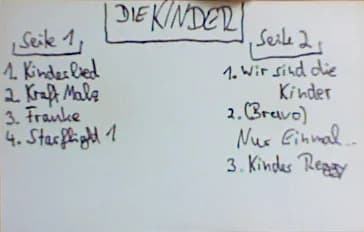 DIE KINDER
Seite 1
1. Kinderlied
2. Kraft Male
3. Franke
4. Starflight 1
Seite 2
1. Wir sind die
Kinder
2. (Bravo)
Nur Einmal...
3. Kinder